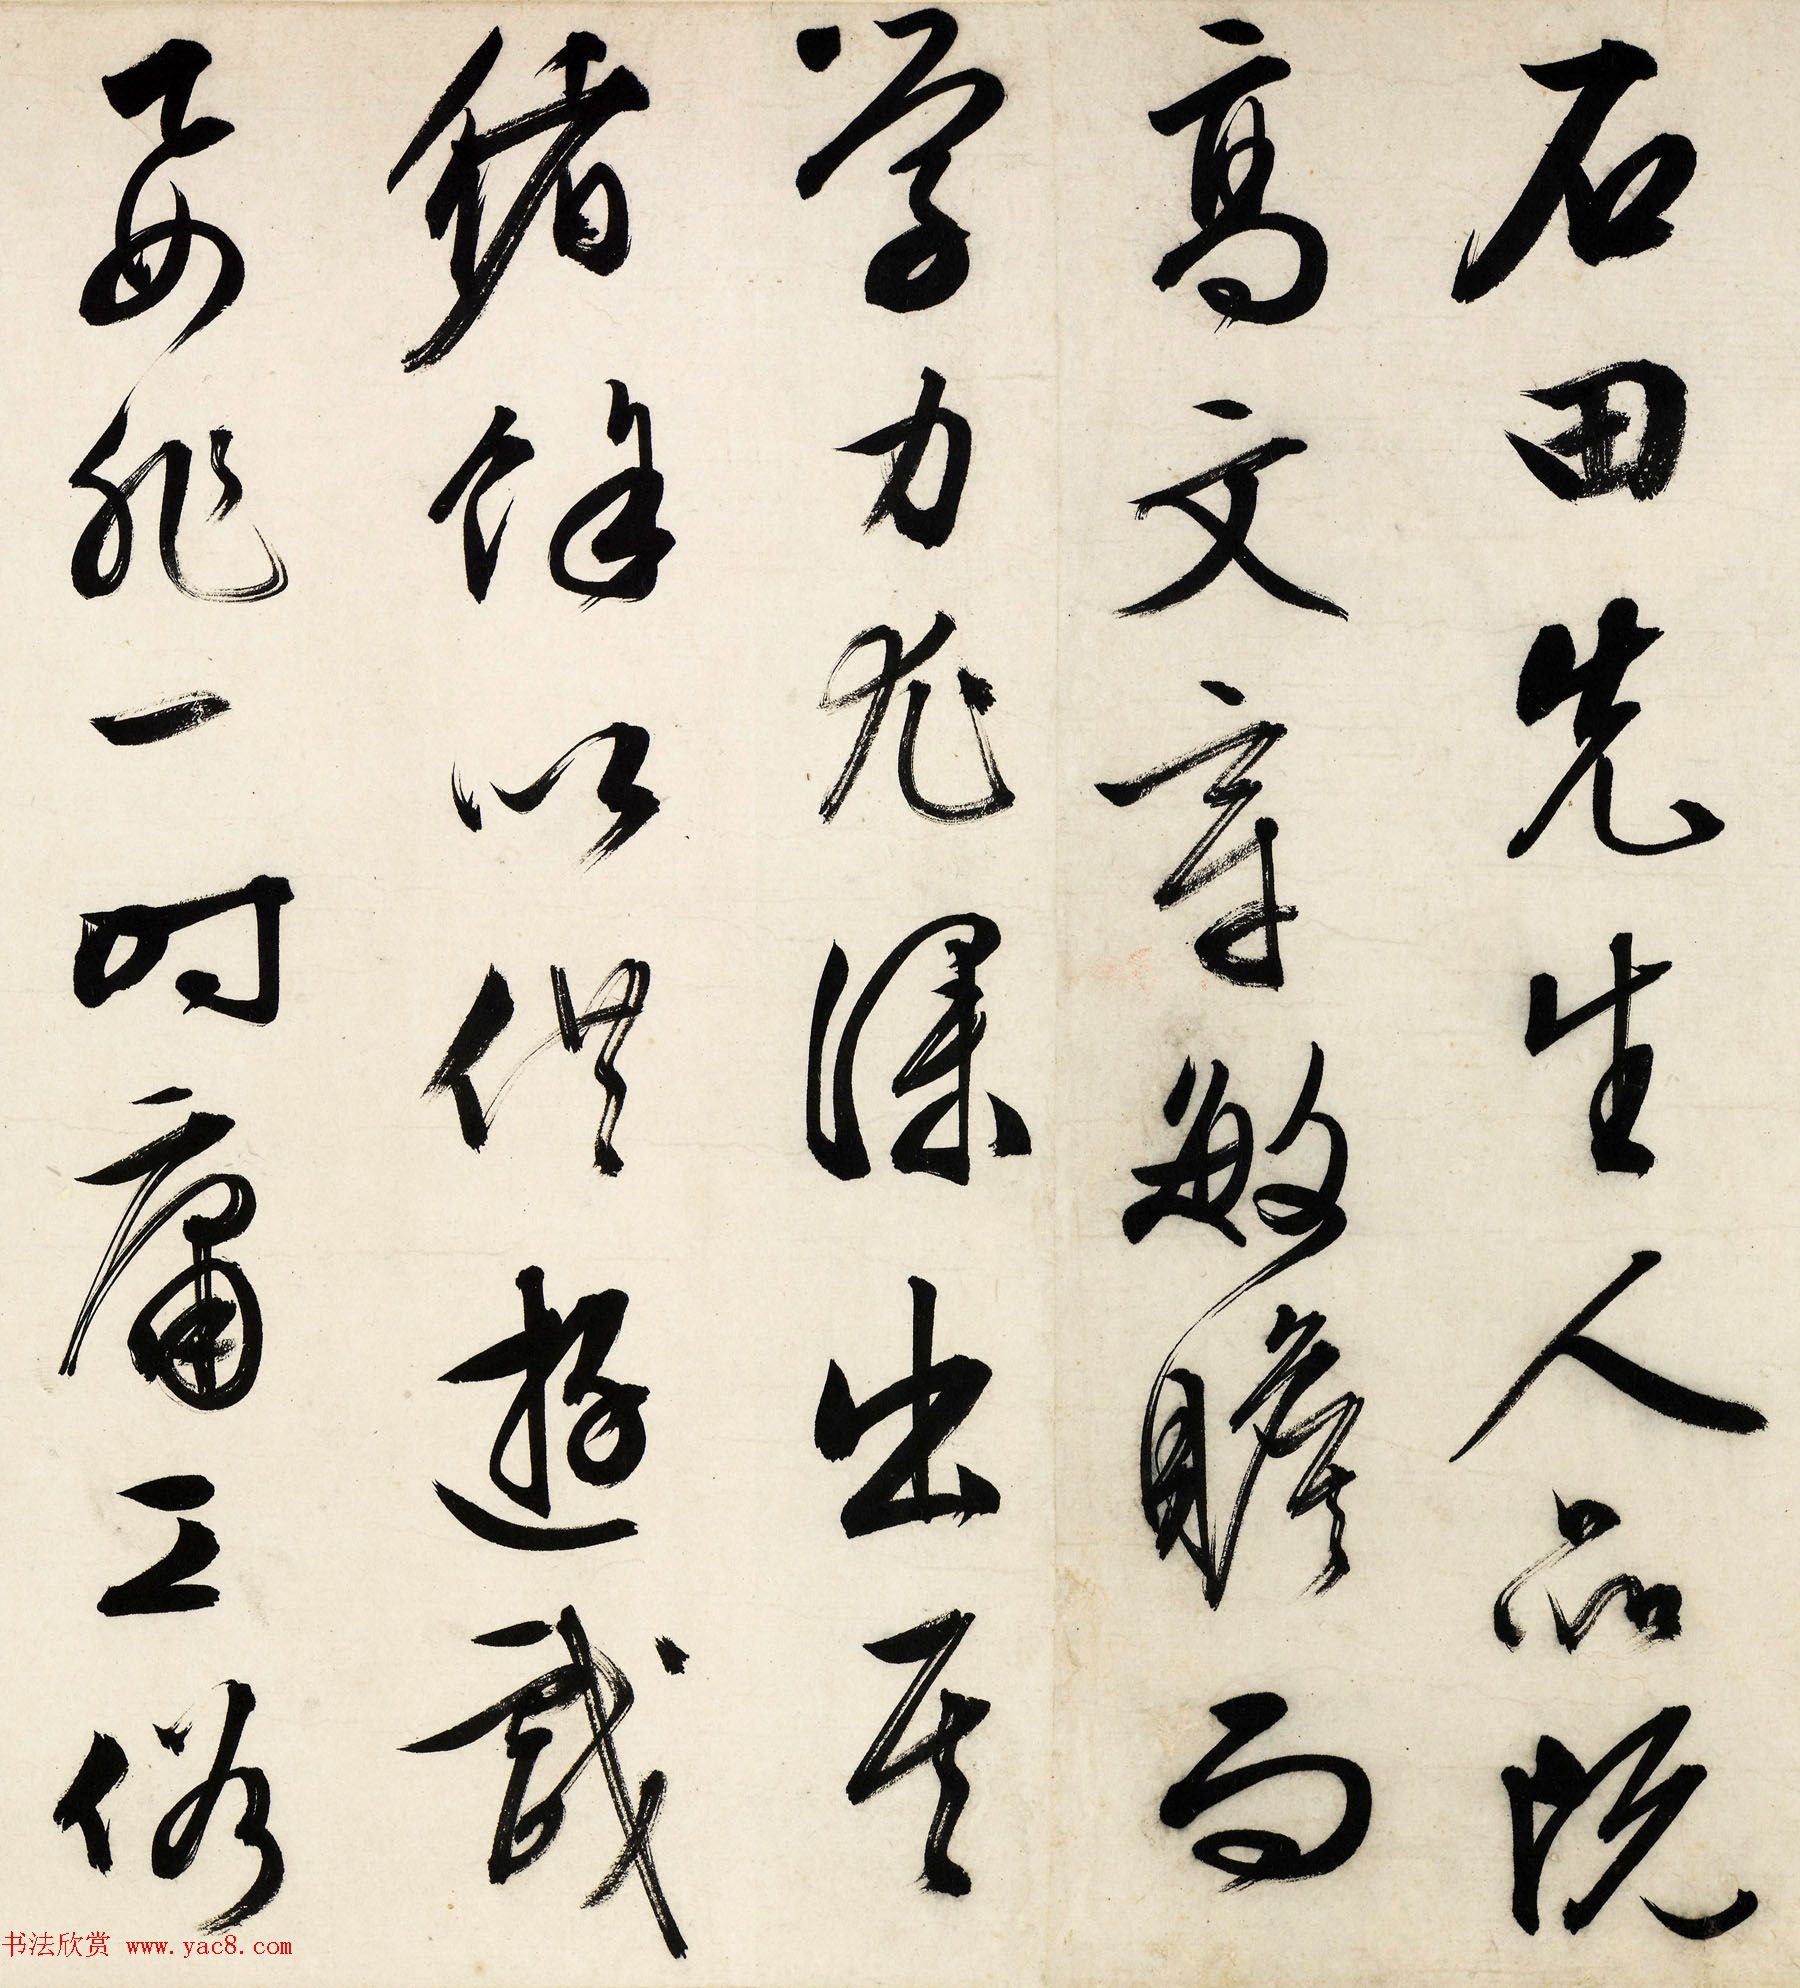 石田先生人品既
高文章敏瞻而
学力尤深出其
绪馀以供遊戏
要非一时庸工俗
书法欣赏 www.yac8.com